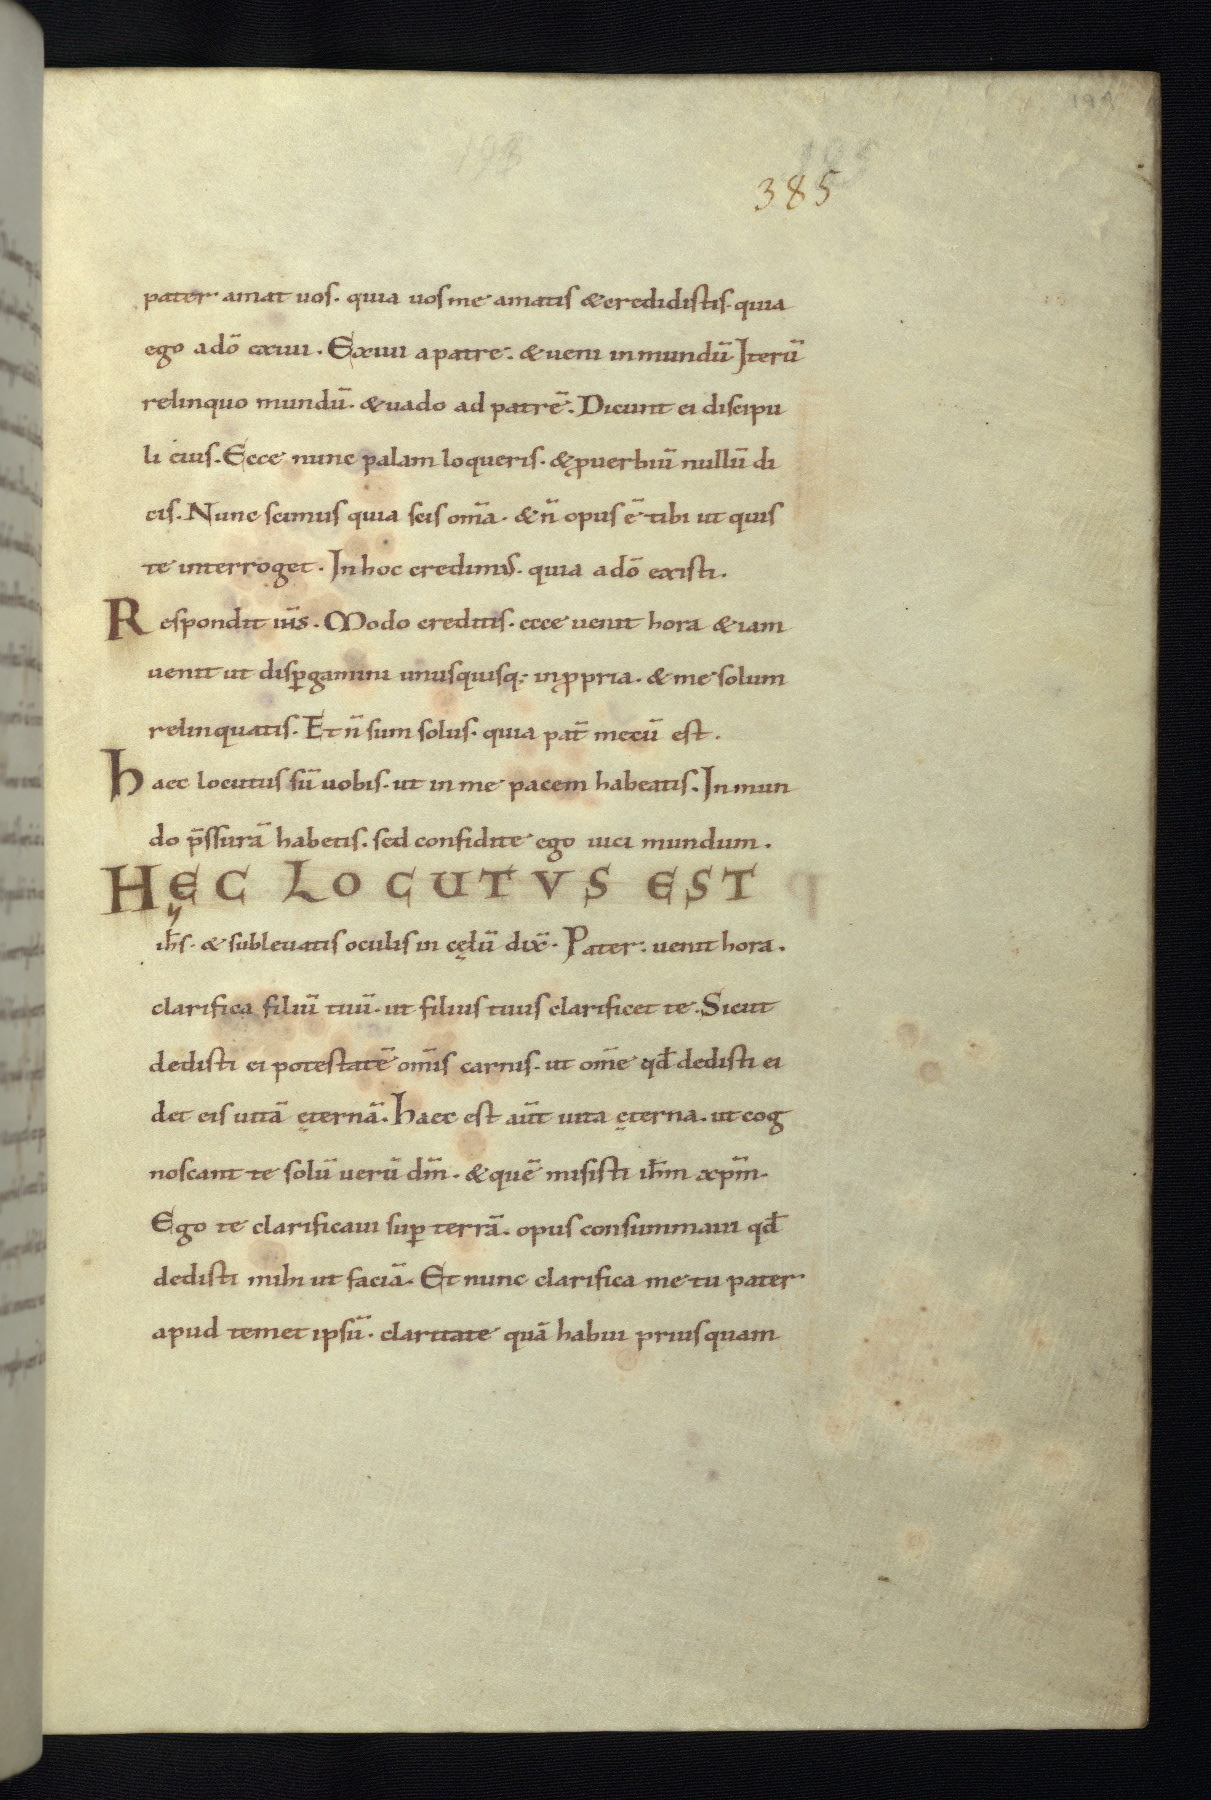 385
pater amat uos. quia uos me amatis & credidistis. quia
ego a dō exiui. Exiui a patre. & ueni in mundū Iterū
relinquo mundū. & uado ad patrē. Dicunt ei discipu
li eius. Ecce nunc palam loqueris. & ꝓuerbiū nullū di
cis. Nunc scimus quia scis om̄a. & n̄ opus ē tibi ut quis
te interroget. In hoc credimus. quia a dō existi.
Respondit ih̄s. Modo creditis. ecce uenit hora & iam
uenit ut disꝑgamini unusquisq; in ꝓpria. & me solum
relinquatis. Et n̄ sum solus. quia pat̄ mecū est.
haec locutus sū uobis. ut in me pacem habeatis. In mun
do p̄ssurā habetis. sed confidite ego uici mundum.
HĘC LOCUTVS EST
ih̄s. & subleuatis oculis in cęlū dix̄. Pater. uenit hora.
clarifica filiū tuū. ut filius tuus clarificet te. Sicut
dedisti ei potestatē om̄is carnis. ut om̄e qđ dedisti ei
det eis uitā ęternā. haec est aūt uita ęterna. ut cog
noscant te solū uerū dm̄. & quē misisti ih̄m xp̄m.
Ego te clarificaui suꝑ terrā. opus consummaui qđ
dedisti mihi ut faciā. Et nunc clarifica me tu pater
apud temet ipsū. claritate quā habui priusquam